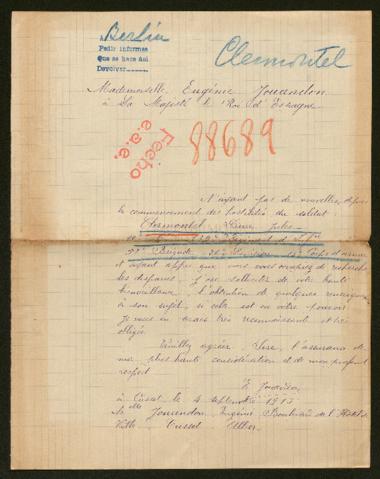 A Berlin
Pedir informes
Que se hace Aci
Devolver
Clermontel
Mademoiselle Eugénie Jourandon
à Sa Majesté le Roi d'Espagne
Fecho
e.a.e.
88689
N'ayant pas de nouvelles depuis
le commencement des hostilités du soldat
Clermontel, Pierre, Jules
Régiment d'Inf
Brigade
et ayant appris que vous vous occupez de rechercher
les disparus, j'ose solliciter de votre haute
bienveillance, l'obtention de quelques renseignements
à son sujet, si cela est en votre pouvoir
Je vous en serais très reconnaissante et très
obligée.
Veuillez agréer, Sire, l'assurance de
ma plus haute considération et de mon profond
respect
E. Jourandon
à Cusset le 4 septembre 1915
Melle Jourandon Eugénie Boulevard de l'Hôtel de
Ville Cusset Allier.